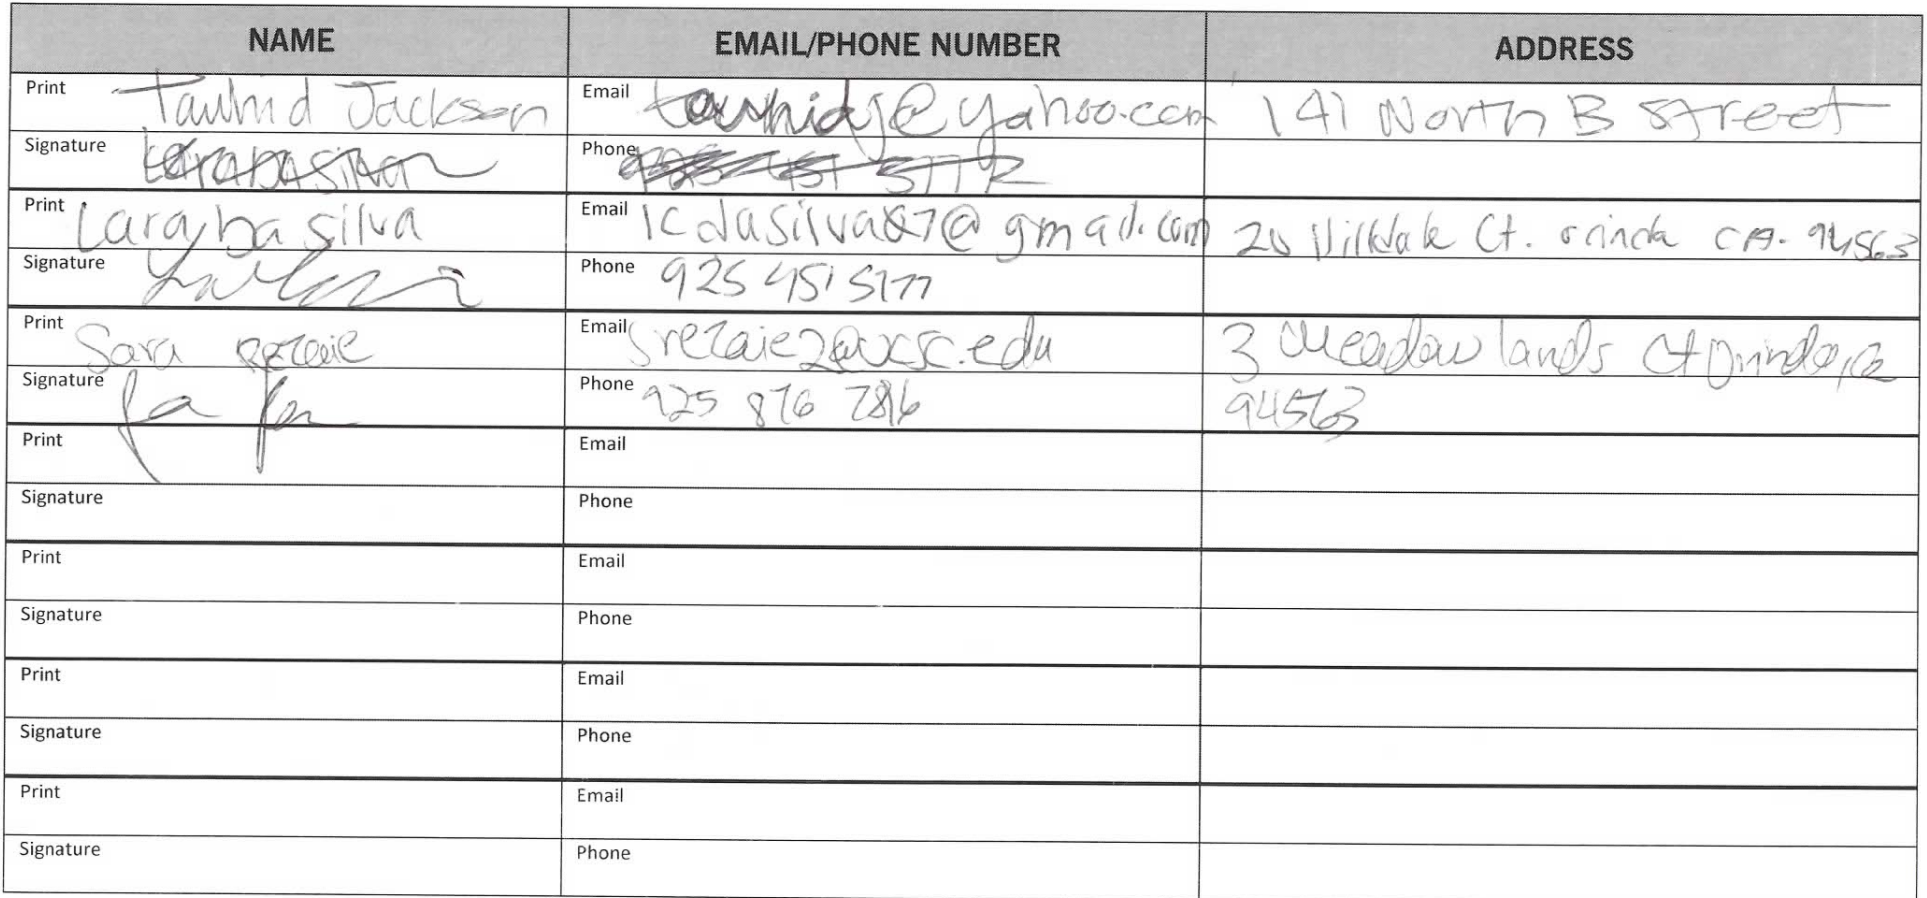 NAME EMAIL/PHONE NUMBER ADDRESS
Print Tauhid Jackson Email tauhidj@yahoo.com 141 North B Street
Signature Phone
Print Lara da silva Email lcdasilva87@gmail.com 20 Hilldale Ct. orinda CA. 94563
Signature Phone 925 451 5177
Print Sara Rezaie Email srezaie2@ucsc.edu 3 Meadow lands Ct Orinda, ca
Signature Phone 925 876 7816 94563
Print Email
Signature Phone
Print Email
Signature Phone
Print Email
Signature Phone
Print Email
Signature Phone